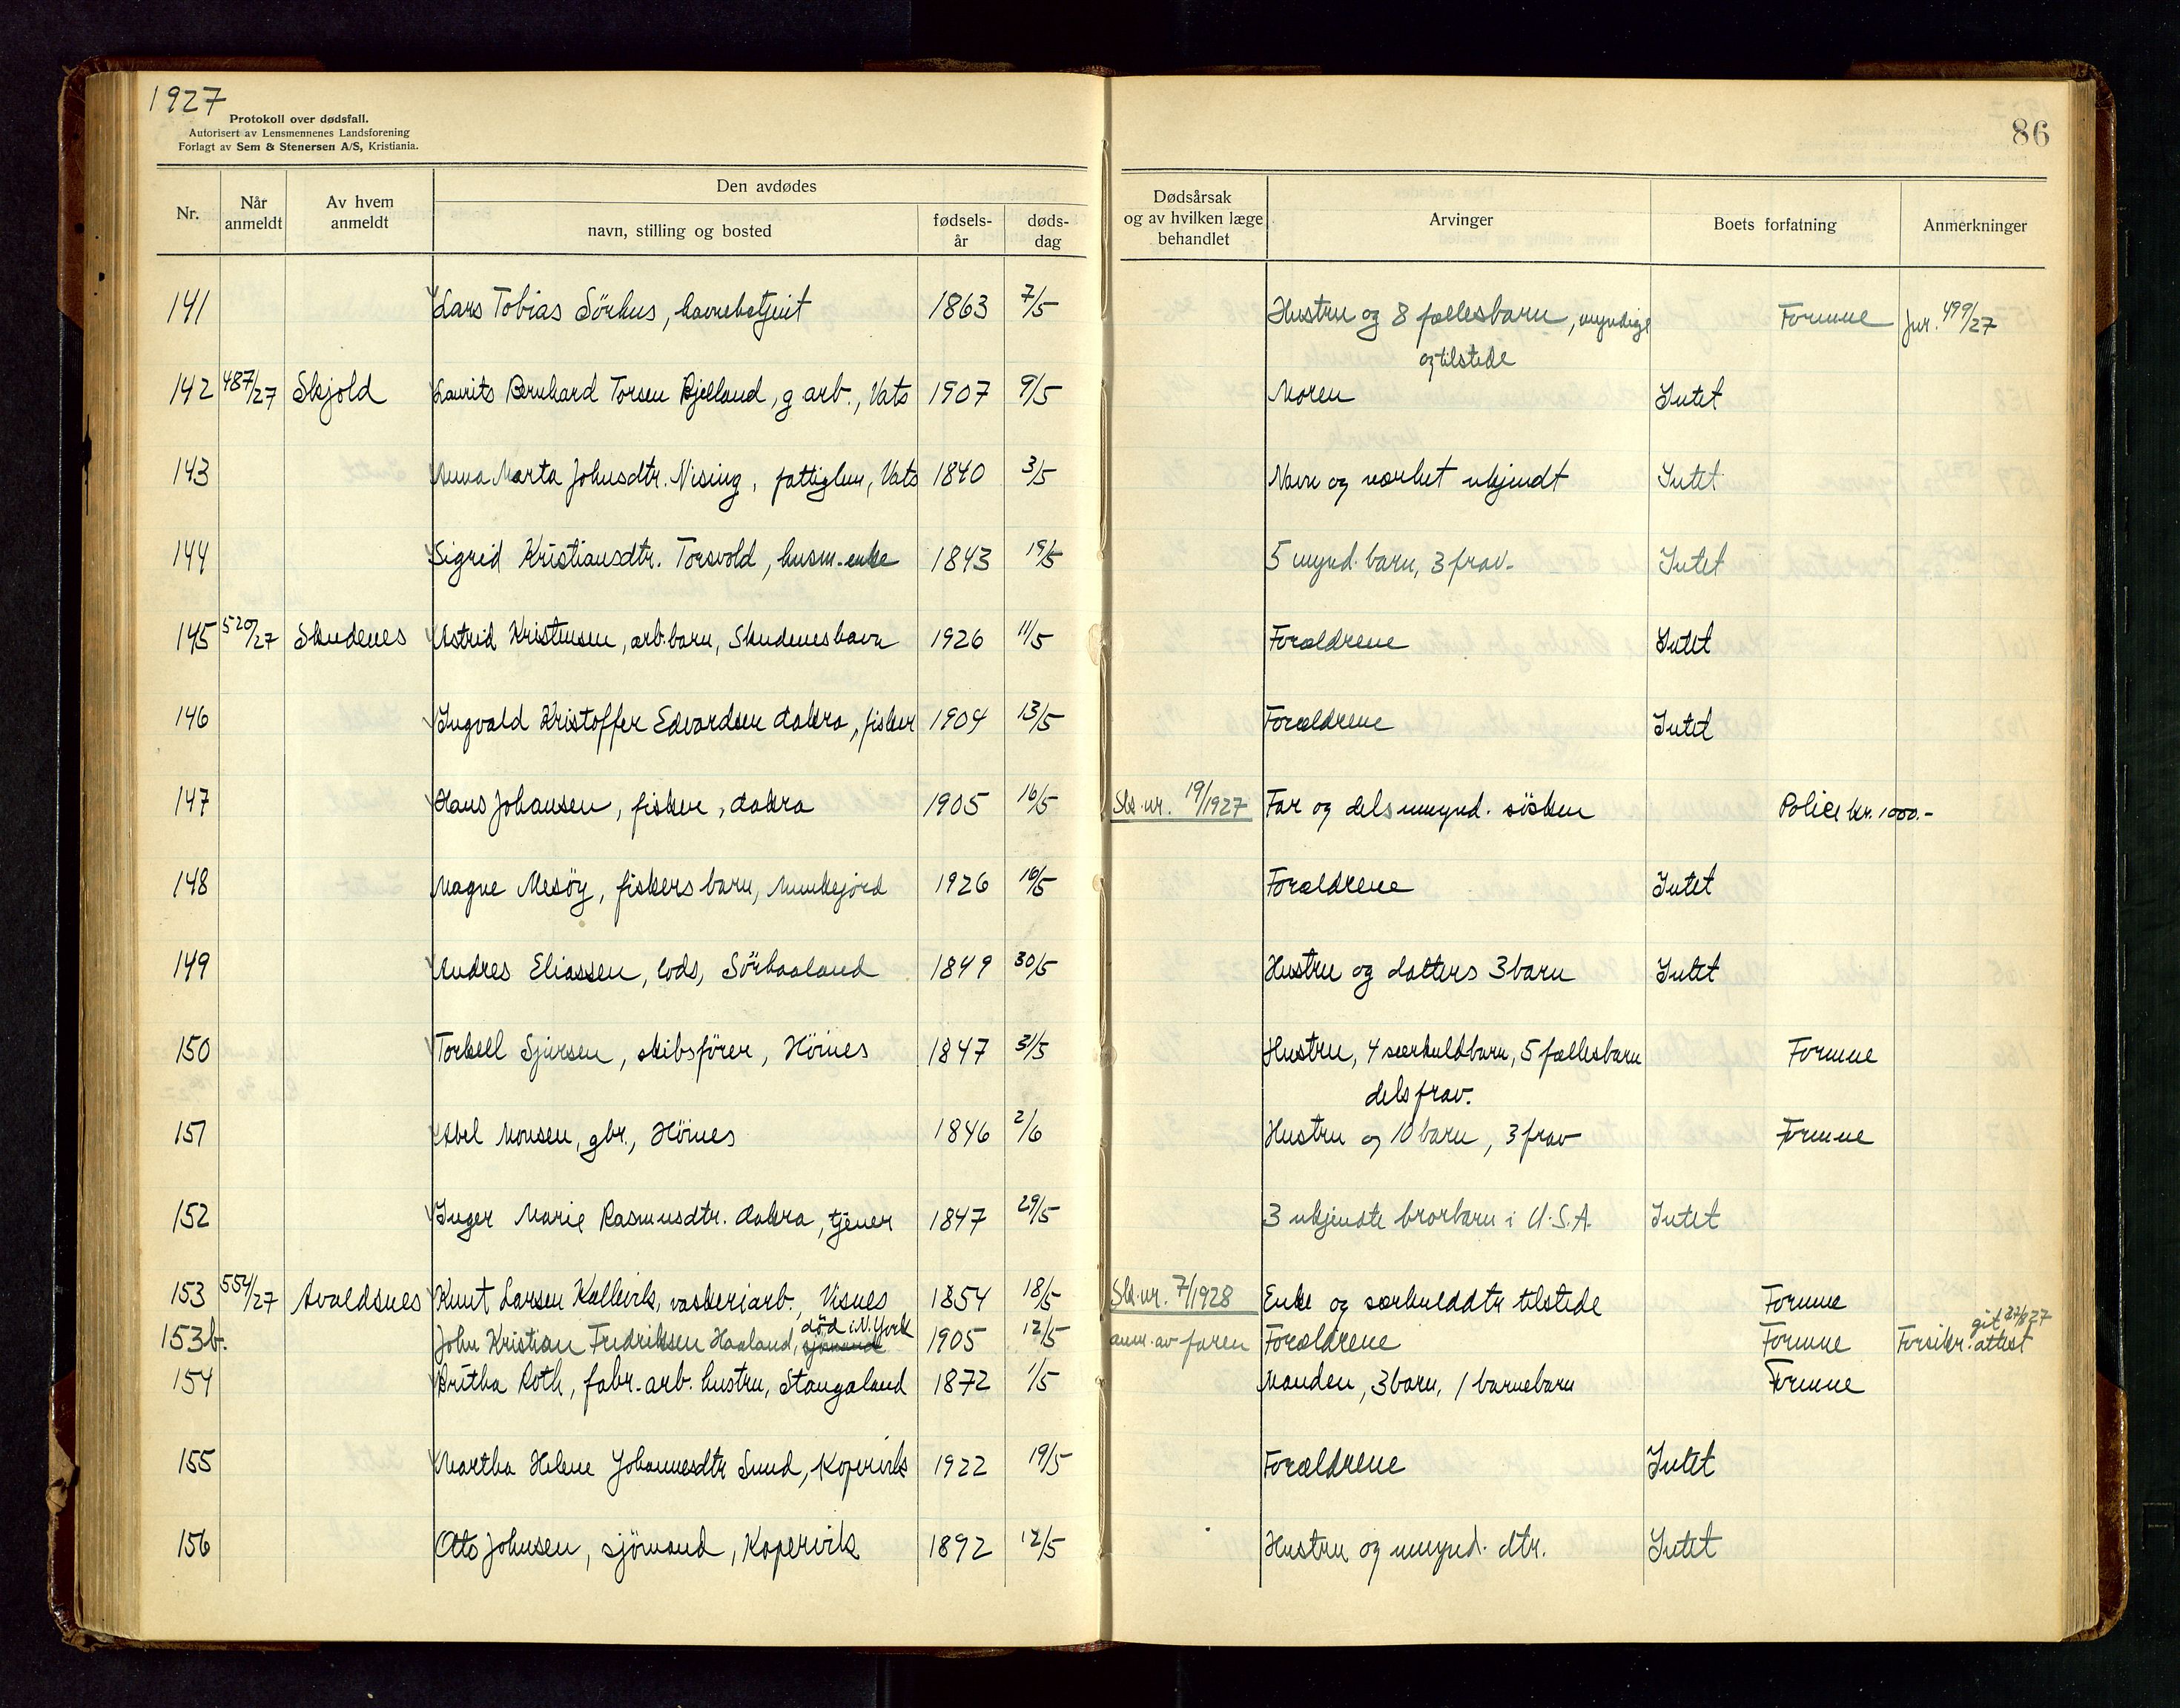 1927
Protokoll over dødsfall.
Autorisert av Lensmennenes Landsforening
Forlagt av Sem & Stenersen A/S, Kristiania.
86
Nr. Når anmeldt Av hvem anmeldt Den avdødes navn, stilling og bosted fødsels-år døds-dag Dødsårsak og av hvilken læge behandlet Arvinger Boets forfatning Anmerkninger
141 Lars Tobias Sörhus, havnebetjent 1863 7/5 Hustru og 8 fællesbarn, myndige Formue Jnr. 499/27
og tilstede
142 487/27 Skjold Laurits Bernhard Torsen Bjelland, g arb., Vats 1907 9/5 Moren Intet
143 Anna Marta Johnsdtr. Nising, fattiglem, Vats 1840 3/5 Navn og værket ukjendt Intet
144 Sigrid Kristiansdtr. Torsvold, husm.enke 1843 19/5 5 mynd. barn, 3 frav. Intet
145 520/27 Skudenes Astrid Kristensen, arb.barn, Skudeneshavn 1926 11/5 Forældrene Intet
146 Ingvald Kristoffer Edvardsen Aakra, fisker 1904 13/5 Forældrene Intet
147 Hans Johansen, fisker, Aakra 1905 16/5 Sk.nr. 19/1927 Far og dels umynd. sösken Police kr. 1000.-
148 Magne Mesöy, fiskers barn, Munkejord 1926 16/5 Forældrene Intet
149 Andres Eliassen, lods, Sörhaaland 1849 30/5 Hustru og datters 3 barn Intet
150 Torkell Sjursen, skibsförer, Höines 1847 31/5 Hustru, 4 særkuldbarn, 5 fællesbarn Formue
dels frav.
151 Abel Monsen, gbr., Höines 1846 2/6 Hustru og 10 barn, 3 frav Formue
152 Inger Marie Rasmusdtr. Aakra, tjener 1847 29/5 3 ukjendte brorbarn i U.S.A. Intet
153 554/27 Avaldsnes Knut Larsen Kallevik, vaskeriarb., Visnes 1854 18/5 Sk.nr. 7/1928 Enke og særkulddtr tilstede Formue
død i N. York git 27/8 27
153b. John Kristian Fredriksen Haaland, sjömand 1905 12/5 anm. av faren Forældrene Formue Forsikr. attest
154 Britha Roth, fabr.arb. hustru, Stangaland 1872 1/5 Manden, 3 barn, 1 barnebarn Formue
155 Martha Helene Johannesdtr Sund, Kopervik 1922 19/5 Forældrene Intet
156 Otto Johnsen, sjömand, Kopervik 1892 12/5 Hustru og umynd. dtr. Intet